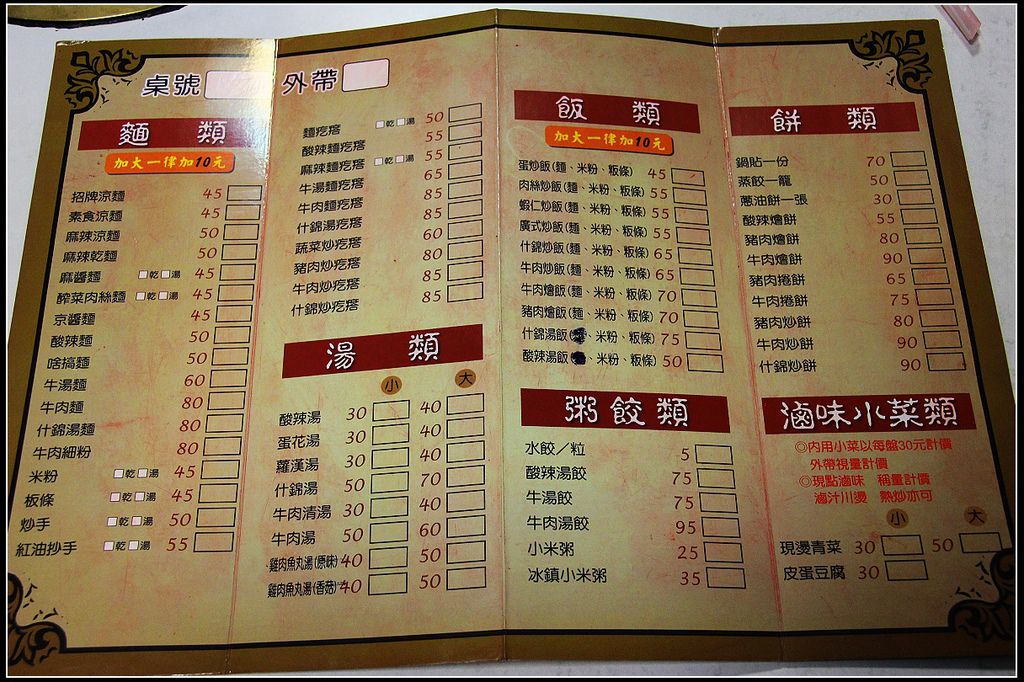 桌號
外帶
麵 類
加大一律加10元
招牌涼麵 45
素食涼麵 45
麻辣涼麵 50
麻辣乾麵 50
麻醬麵 □乾□湯 45
醡菜肉絲麵 □乾□湯 45
京醬麵 45
酸辣麵 50
啥搞麵 50
牛湯麵 60
牛肉麵 80
什錦湯麵 80
牛肉細粉 80
米粉 □乾□湯 45
板條 □乾□湯 45
炒手 □乾□湯 50
紅油抄手 □乾□湯 55
麵疙瘩 □乾□湯 50
酸辣麵疙瘩 55
麻辣麵疙瘩 □乾□湯 55
牛湯麵疙瘩 65
牛肉麵疙瘩 85
什錦湯疙瘩 85
蔬菜炒疙瘩 60
豬肉炒疙瘩 80
牛肉炒疙瘩 85
什錦炒疙瘩 85
湯 類
小 大
酸辣湯 30 40
蛋花湯 30 40
羅漢湯 30 40
什錦湯 50 70
牛肉清湯 30 40
牛肉湯 50 60
雞肉魚丸湯(原味) 40 50
雞肉魚丸湯(香菇) 40 50
飯 類
加大一律加10元
蛋炒飯(麵、米粉、粄條) 45
肉絲炒飯(麵、米粉、粄條) 55
蝦仁炒飯(麵、米粉、粄條) 55
廣式炒飯(麵、米粉、粄條) 55
什錦炒飯(麵、米粉、粄條) 65
牛肉炒飯(麵、米粉、粄條) 65
牛肉燴飯(麵、米粉、粄條) 70
豬肉燴飯(麵、米粉、粄條) 70
什錦湯飯( 、米粉、粄條) 75
酸辣湯飯( 、米粉、粄條) 50
粥餃類
水餃／粒 5
酸辣湯餃 75
牛湯餃 75
牛肉湯餃 95
小米粥 25
冰鎮小米粥 35
餅 類
鍋貼一份 70
蒸餃一籠 50
蔥油餅一張 30
酸辣燴餅 55
豬肉燴餅 80
牛肉燴餅 90
豬肉捲餅 65
牛肉捲餅 75
豬肉炒餅 80
牛肉炒餅 90
什錦炒餅 90
滷味小菜類
◎內用小菜以每盤30元計價
外帶視量計價
◎現點滷味 稱量計價
滷汁川燙 熱炒亦可
小 大
現燙青菜 30 50
皮蛋豆腐 30